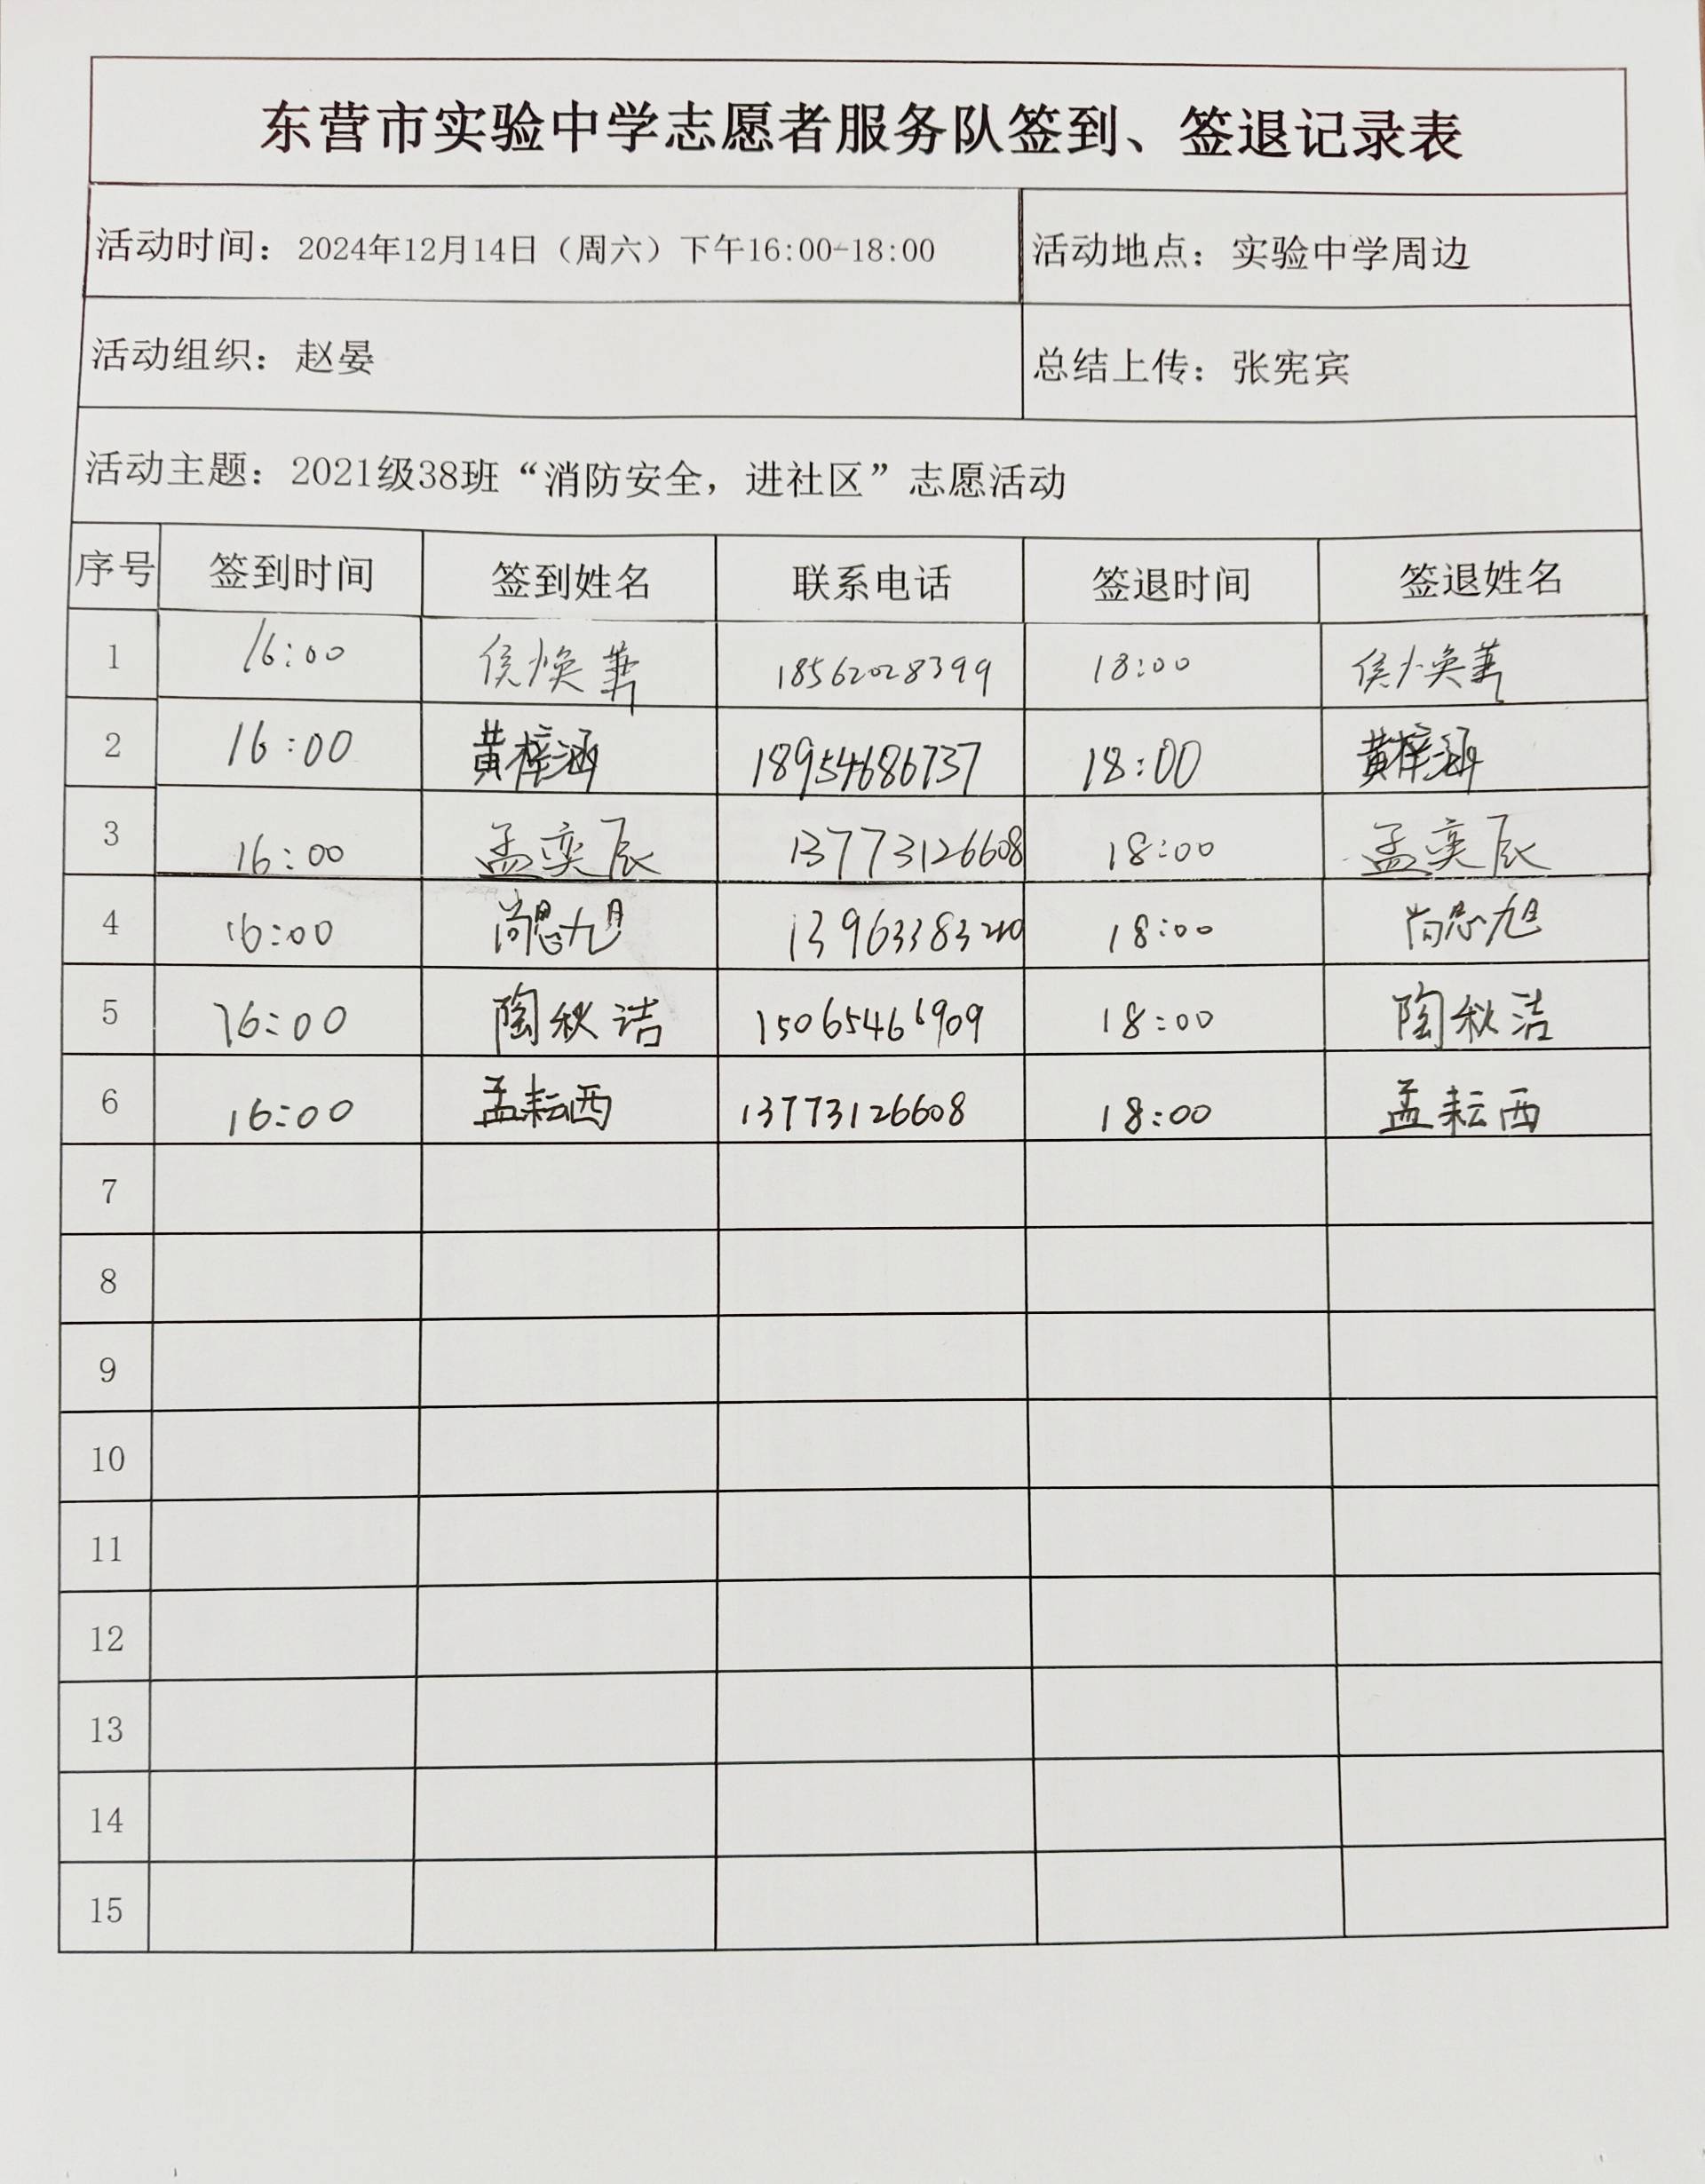 东营市实验中学志愿者服务队签到、签退记录表
活动时间：2024年12月14日（周六）下午16:00-18:00 活动地点：实验中学周边
活动组织：赵晏 总结上传：张宪宾
活动主题：2021级38班“消防安全，进社区”志愿活动
序号 签到时间 签到姓名 联系电话 签退时间 签退姓名
1 16:00 侯焕 18562028399 18:00 侯焕
2 16:00 黄梓涵 18954686737 18:00 黄梓涵
3 16:00 孟奕辰 13773126608 18:00 孟奕辰
4 16:00 尚思旭 13963383210 18:00 尚思旭
5 16:00 陶秋洁 15065466909 18:00 陶秋洁
6 16:00 孟耘西 13773126608 18:00 孟耘西
7
8
9
10
11
12
13
14
15